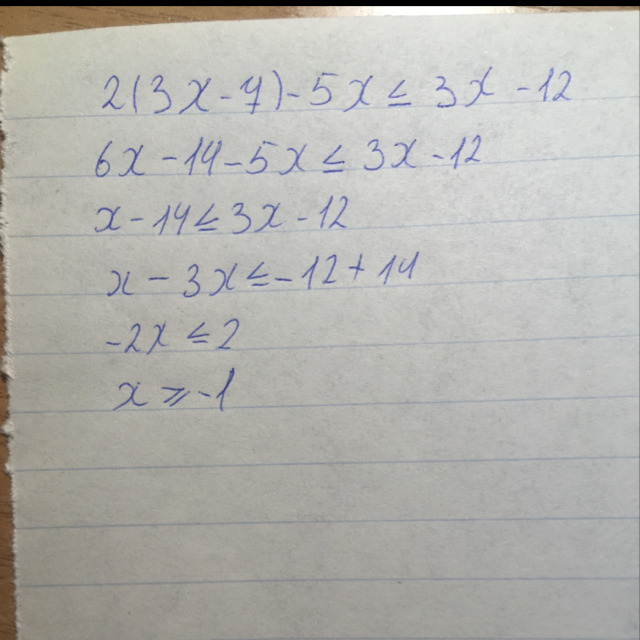 2(3x-7)-5x≤3x-12
6x-14-5x≤3x-12
x-14≤3x-12
x-3x≤-12+14
-2x≤2
x≥-1